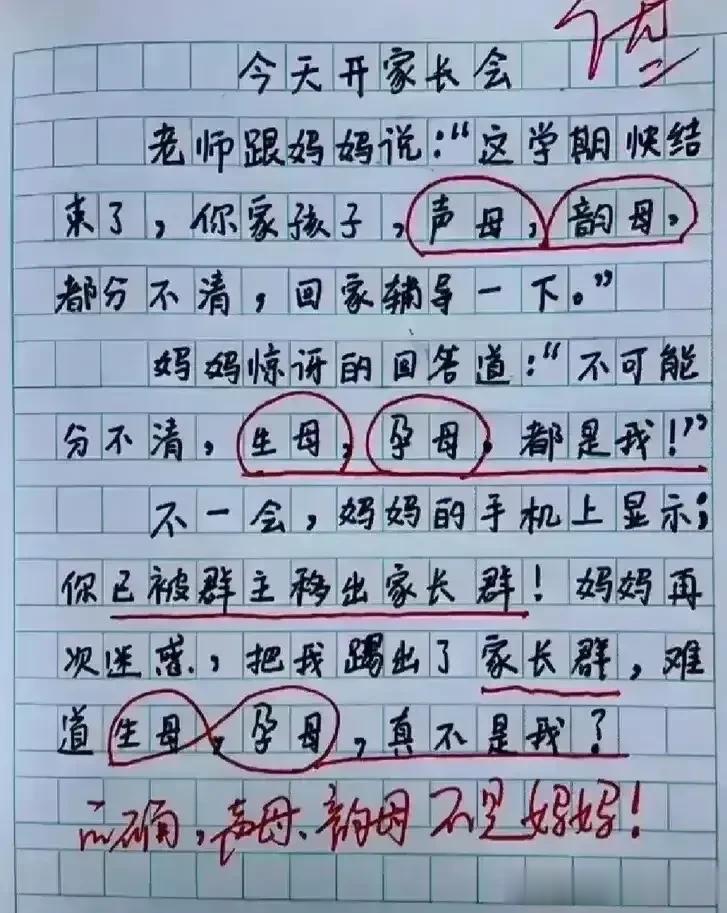 优
今天开家长会
老师跟妈妈说:“这学期快结
束了,你家孩子,声母,韵母,
都分不清,回家辅导一下。”
妈妈惊讶的回答道:“不可能
分不清,生母,孕母,都是我!”
不一会,妈妈的手机上显示;
你已被群主移出家长群!妈妈再
次迷惑,把我踢出了家长群,难
道生母,孕母,真不是我?
应确,声母、韵母不是妈妈!